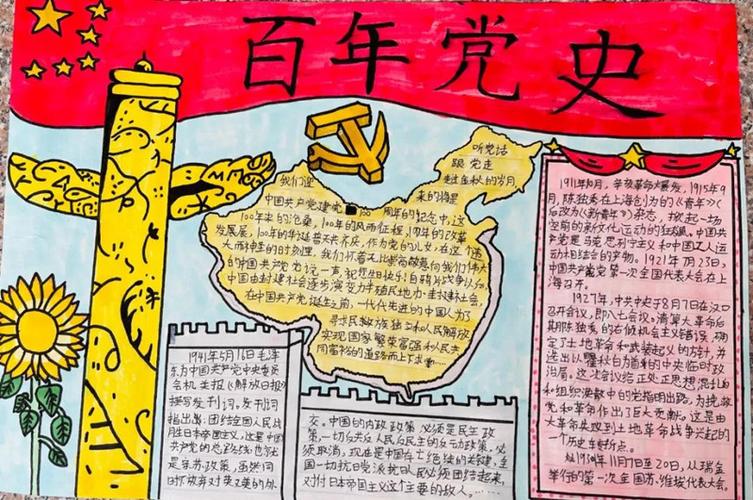 百年党史
听党话
跟党走
我们迎来的将是
中国共产党建党100周年的纪念中,这
100年来的沧桑,100年的风雨征程,
发展层,100年的华诞普天齐庆,作为党的儿女,在这个伟
大而神圣的时刻理,我们怀着无比崇高敬意向我们伟大
的中国共产党边说一声,祝您生快乐!自鸦片战争以后,
中国由封建社会逐步演变为半殖民地为一封建社会,
在中国共产党诞生之前,一代代先进的中国人为了
寻求民族独立和人民解放
实现国家繁荣富强和人民共
同富裕的道路而上下求索……
1911年10月,辛亥革命大爆发,1915年9
月,陈独秀在上海创办的《青年》(
后改为《新青年》)杂志,掀起一场
空前的新文化运动的狂飙。中国共
产党是马克思列宁主义和中国工人运
动木目结合的产物。1921年7月23日,
中国共产党第一次全国代表大会在上
海召开。
1927年,中共中央于8月7日在汉口
召开会议,即八七会议。清算大革命后
期陈独秀的右倾机会主义错误,确
定了土地革命和武装起义的方针,并
选出以瞿秋白为首的中央临时政
治局。这次会议给正处于思想混乱
和组织涣散中的党指明出路,为挽救
党和革命作出了巨大贡献。这是由
大革命失败到土地革命战争兴起的
一个历史车专折点。
1941年5月16日毛泽
东为中国共产党中央委员
会机关报《解放日报》
撰写发刊词。发刊词
指出:团结全国人民战
胜日本帝国主义,这是中国
共产党的总路线,也就
是
交。中国的内政政策必须是民主政
策,一切反共反人民反民主的反动政策,必
须取消,现在是中国存亡绝续的关键,全
国一切抗日党派抗日人民必须团结起来,
对付日本帝国主义这个主要的敌人。……